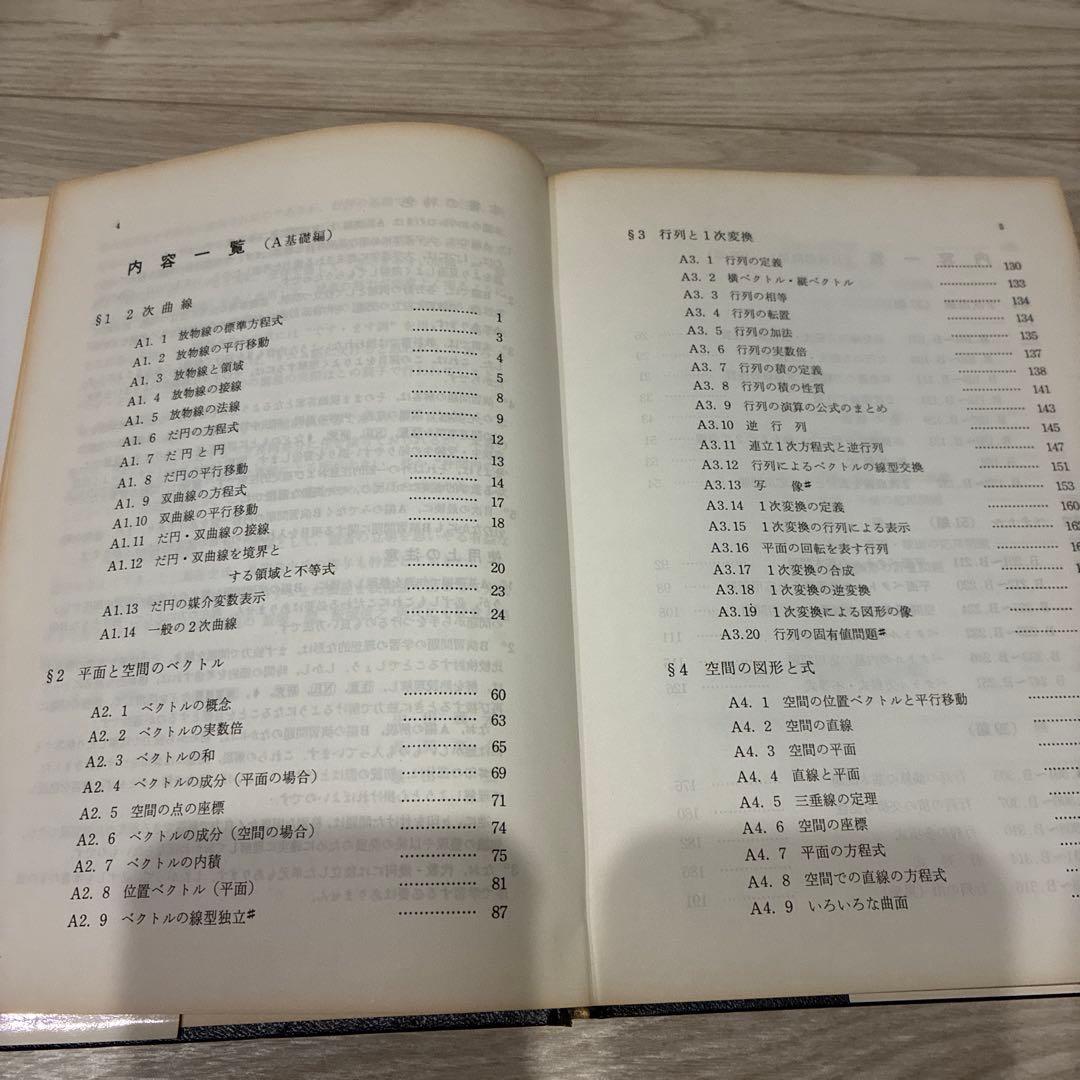 4
内容一覧（A基礎編）
§1 2次曲線
A1. 1 放物線の標準方程式 ………… 1
A1. 2 放物線の平行移動 ………… 3
A1. 3 放物線と領域 ………… 4
A1. 4 放物線の接線 ………… 5
A1. 5 放物線の法線 ………… 8
A1. 6 だ円の方程式 ………… 9
A1. 7 だ円と円 ………… 12
A1. 8 だ円の平行移動 ………… 13
A1. 9 双曲線の方程式 ………… 14
A1.10 双曲線の平行移動 ………… 17
A1.11 だ円・双曲線の接線 ………… 18
A1.12 だ円・双曲線を境界と
する領域と不等式 ………… 20
A1.13 だ円の媒介変数表示 ………… 23
A1.14 一般の2次曲線 ………… 24
§2 平面と空間のベクトル
A2. 1 ベクトルの概念 ………… 60
A2. 2 ベクトルの実数倍 ………… 63
A2. 3 ベクトルの和 ………… 65
A2. 4 ベクトルの成分（平面の場合） ………… 69
A2. 5 空間の点の座標 ………… 71
A2. 6 ベクトルの成分（空間の場合） ………… 74
A2. 7 ベクトルの内積 ………… 75
A2. 8 位置ベクトル（平面） ………… 81
A2. 9 ベクトルの線型独立# ………… 87
§3 行列と1次変換
A3. 1 行列の定義 ………… 130
A3. 2 横ベクトル・縦ベクトル ………… 133
A3. 3 行列の相等 ………… 134
A3. 4 行列の転置 ………… 134
A3. 5 行列の加法 ………… 135
A3. 6 行列の実数倍 ………… 137
A3. 7 行列の積の定義 ………… 138
A3. 8 行列の積の性質 ………… 141
A3. 9 行列の演算の公式のまとめ ………… 143
A3.10 逆行列 ………… 145
A3.11 連立1次方程式と逆行列 ………… 147
A3.12 行列によるベクトルの線型交換 ………… 151
A3.13 写像# ………… 153
A3.14 1次変換の定義 ………… 160
A3.15 1次変換の行列による表示 …………
A3.16 平面の回転を表す行列 …………
A3.17 1次変換の合成 …………
A3.18 1次変換の逆変換 …………
A3.19 1次変換による図形の像 …………
A3.20 行列の固有値問題# …………
§4 空間の図形と式
A4. 1 空間の位置ベクトルと平行移動
A4. 2 空間の直線 …………
A4. 3 空間の平面 …………
A4. 4 直線と平面 …………
A4. 5 三垂線の定理 …………
A4. 6 空間の座標 …………
A4. 7 平面の方程式 …………
A4. 8 空間での直線の方程式 …………
A4. 9 いろいろな曲面 …………